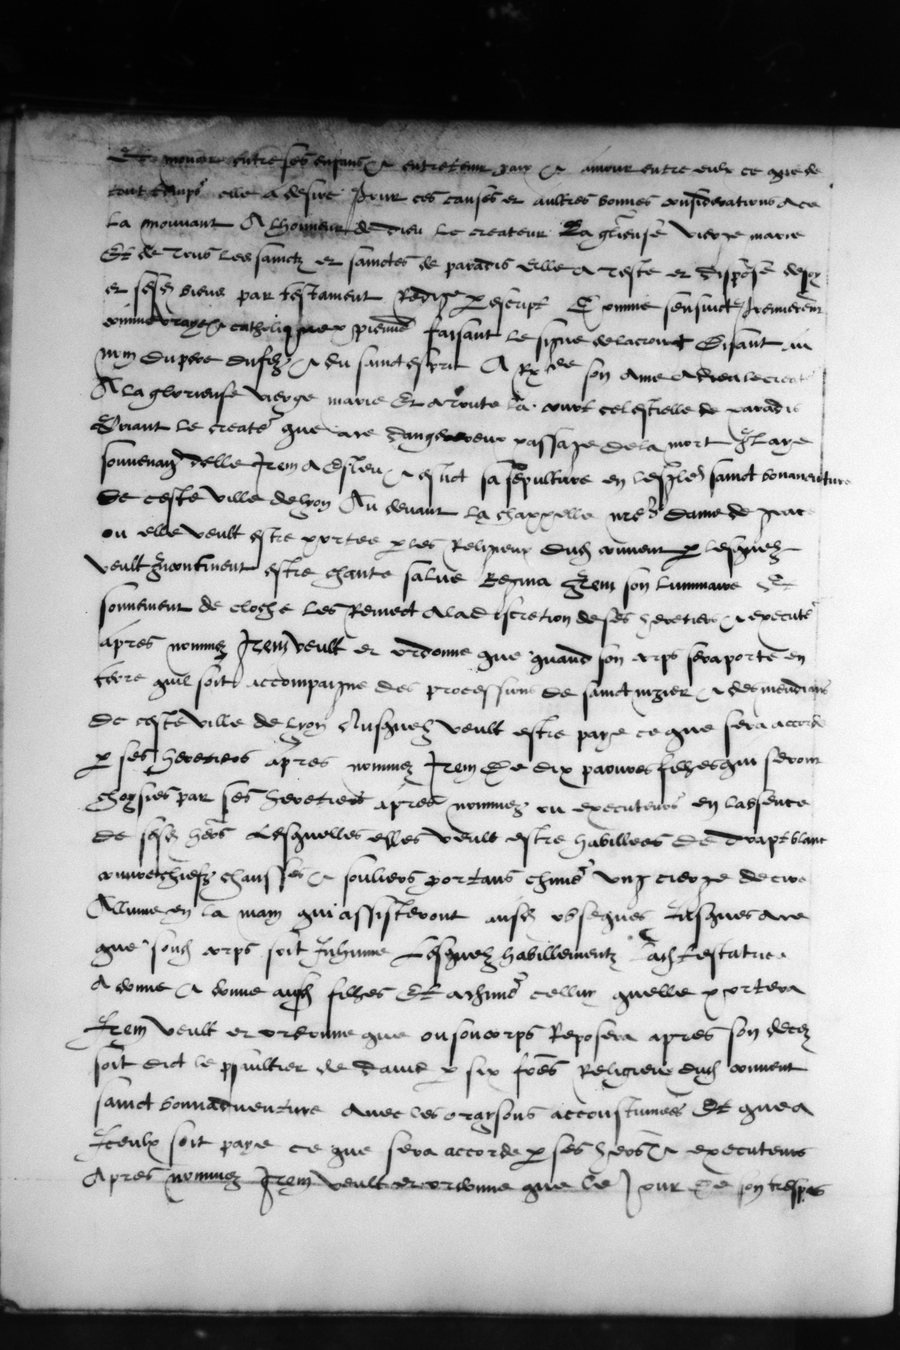 Et mouvoir entre ses enfans & entretenir paix & amour entre eulx ce que de
tout temps elle a desire Pour ces causes et aultres bonnes considerations a ce
la mouvant A lhonneur de Dieu le createur La glieuse vierge marie
Et de tous les sainctz et sainctes de paradis elle a teste et dispose de soy
et sesd biens par testament Redige p escript Comme sensuict Premierem
comme vraye & catholique xpienne faisant le signe de la croix Disant in
nom du pere du filz & du sainct esprit A Rx de son ame a dieu le creat
A la glorieuse vierge marie Et a toute la court celestielle de paradis
Priant le creatr que au dangereux passaige de la mort Il aye
souvenanc delle Item a esleu & eslict sa sepulture en lesgle sainct bonaventure
de ceste ville de lyon Au devant la chappelle nre Dame de grace
ou elle veult estre portee p les Religieux dud couvent p lesquelz
veult incontinent estre chante salve Regina Item son luminaire Et
sonnement de cloche les Remect a la discretion de ses heretiers & executr
apres nommez Item veult et ordonne que quand son corps sera porte en
terre quil soit accompaigne des processions de sainct nizier & des mendians
de ceste ville de lyon Ausquelz veult estre paye ce que sera accorde
p ses heretiers apres nommez Item De dix pauvres filhes qui seront
choysies par ses heretiers apres nommez ou executeurs en labsence
de sesd hers Lesquelles elles veult estre habillees de drapt blanc
couvrechiefz chausses & souliers portans chune ung cierge de cire
Allume en la main qui assisteront ausd obseques Jusques a ce
que sond corps soit Inhume Lesquelz habillementz lad testatrice
a donne & donne ausd filhes Et a chune celluy quelle portera
Item veult et ordonne que ou son corps Reposera apres son deces
soit dict le psaultier de david p six freres Religieux dud couvent
sainct bonnadventure avec les oraysons accoustumees Et que a
Iceulx soit paye ce que sera accorde p ses hers & executeurs
Apres nommez Item veult et ordonne que le Jour de son trespas